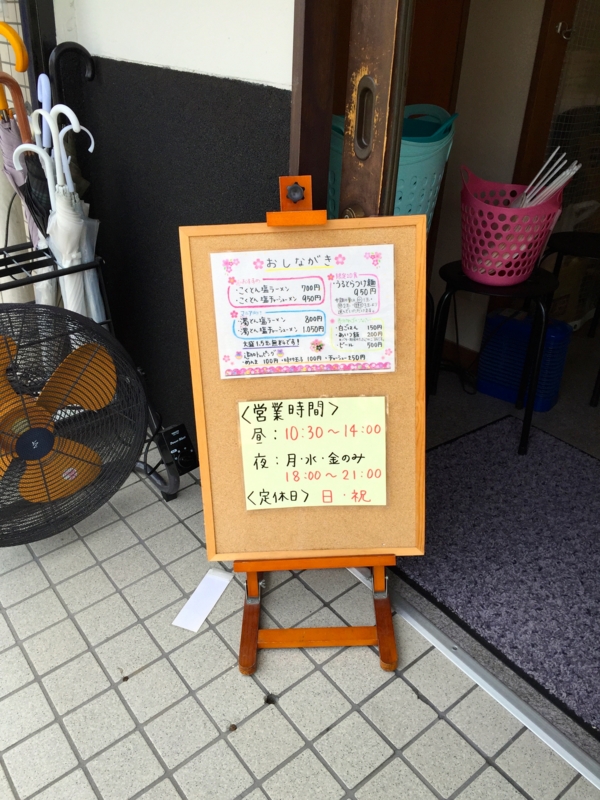 おしながき
こくとん塩ラーメン 700円
こくとん塩チャーシューメン 950円
濃とん塩ラーメン 800円
濃とん塩チャーシューメン 1.050円
大盛1.5玉無料です!
うるとらつけ麺
950円
白ごはん 150円
ビール 500円
追加トッピング
めんま 100円 味付玉子 100円 チャーシュー 350円
〈営業時間〉
昼:10:30〜14:00
夜:月・水・金のみ
18:00〜21:00
〈定休日〉日・祝